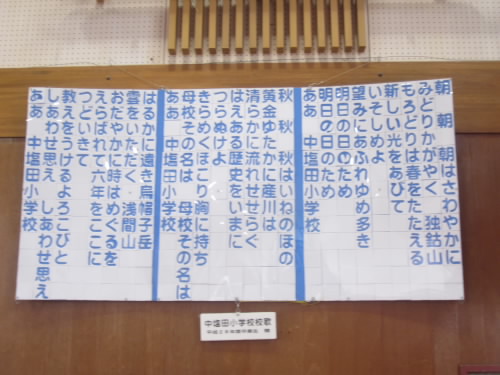 朝 朝 朝はさわやかに
みどりかがやく 独鈷山
もろどりは春をたたえる
新しい光をあびて
いそしめよ
望みにあふれゆめ多き
明日の日のため
明日の日のため
ああ 中塩田小学校
秋 秋 秋はいねのほの
黄金ゆたかに産川は
清らかに流れせせらぐ
はえある歴史をいまに
つらぬけよ
きらめくほこり胸に持ち
母校その名は 母校その名は
ああ 中塩田小学校
はるかに遠き烏帽子岳
雲をいただく 浅間山
おだやかに時はめぐるを
えらばれて六年をここに
つどいきて
教えをうけるよろこびと
しあわせ思え しあわせ思え
ああ 中塩田小学校
中塩田小学校校歌